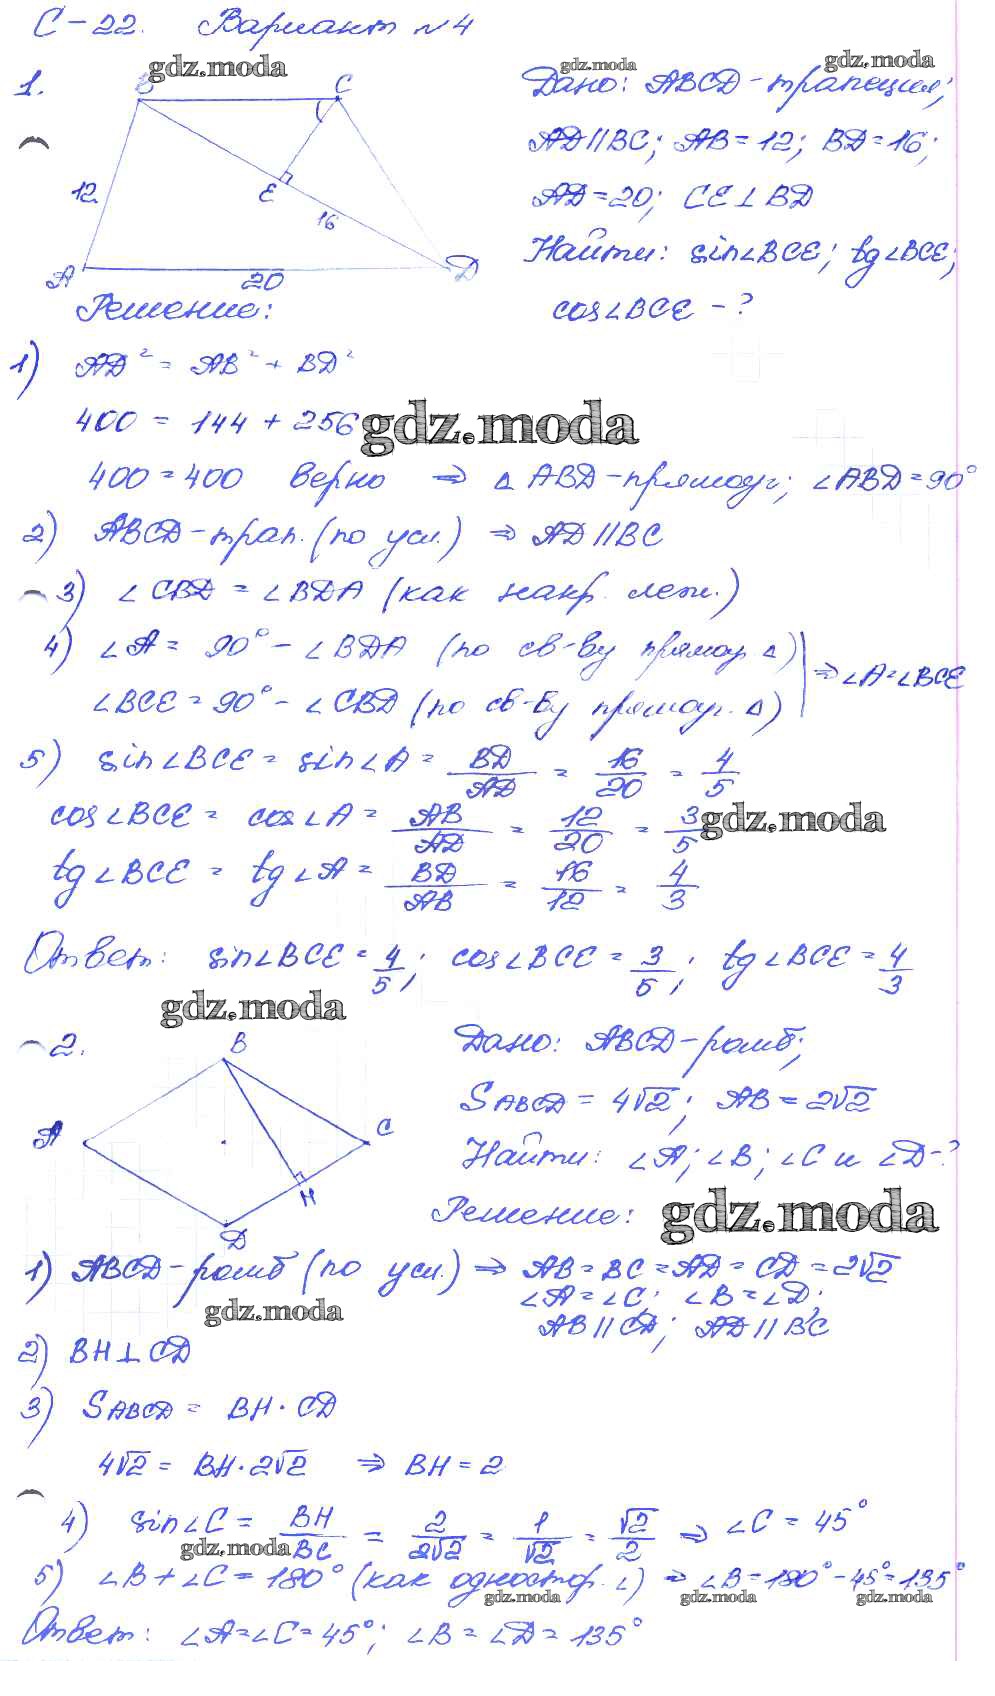 С-22. Вариант №4
gdz.moda gdz.moda gdz.moda
1. B C Дано: ABCD-трапеция;
AD∥BC; AB=12; BD=16;
12 E 16 AD=20; CE⊥BD
Найти: sin∠BCE; tg∠BCE;
A 20 D
Решение: cos∠BCE - ?
1) AD² = AB² + BD²
400 = 144 + 256 gdz.moda
400=400 верно ⇒ △ABD-прямоуг; ∠ABD=90°
2) ABCD-трап. (по усл.) ⇒ AD∥BC
3) ∠CBD = ∠BDA (как накр. леж.)
4) ∠A = 90° - ∠BDA (по св-ву прямоуг △)
∠BCE = 90° - ∠CBD (по св-ву прямоуг. △) ⇒ ∠A=∠BCE
5) sin∠BCE = sin∠A = BD/AD = 16/20 = 4/5
cos∠BCE = cos∠A = AB/AD = 12/20 = 3/5 gdz.moda
tg∠BCE = tg∠A = BD/AB = 16/12 = 4/3
Ответ: sin∠BCE = 4/5; cos∠BCE = 3/5; tg∠BCE = 4/3
gdz.moda
2. B Дано: ABCD-ромб;
A C S ABCD = 4√2; AB = 2√2
H Найти: ∠A; ∠B; ∠C и ∠D-?
D Решение: gdz.moda
1) ABCD-ромб (по усл.) ⇒ AB = BC = AD = CD = 2√2
gdz.moda ∠A = ∠C; ∠B = ∠D;
AB∥CD; AD∥BC
2) BH⊥CD
3) S ABCD = BH · CD
4√2 = BH · 2√2 ⇒ BH = 2
4) sin∠C = BH/BC = 2/2√2 = 1/√2 = √2/2 ⇒ ∠C = 45°
gdz.moda
5) ∠B + ∠C = 180° (как одностор. ∠) ⇒ ∠B = 180° - 45° = 135°
gdz.moda gdz.moda gdz.moda
Ответ: ∠A = ∠C = 45°; ∠B = ∠D = 135°